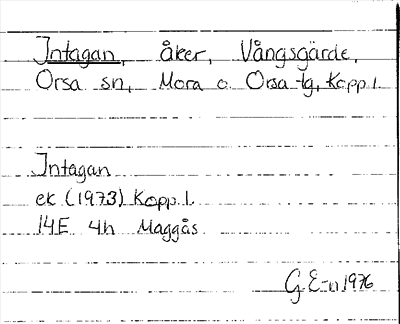 Intagan, åker, Vångsgärde,
Orsa sn, Mora o. Orsa tg, Kopp l.
Intagan
ek (1973) Kopp l.
14E 4h Maggås
G.E-n 1976